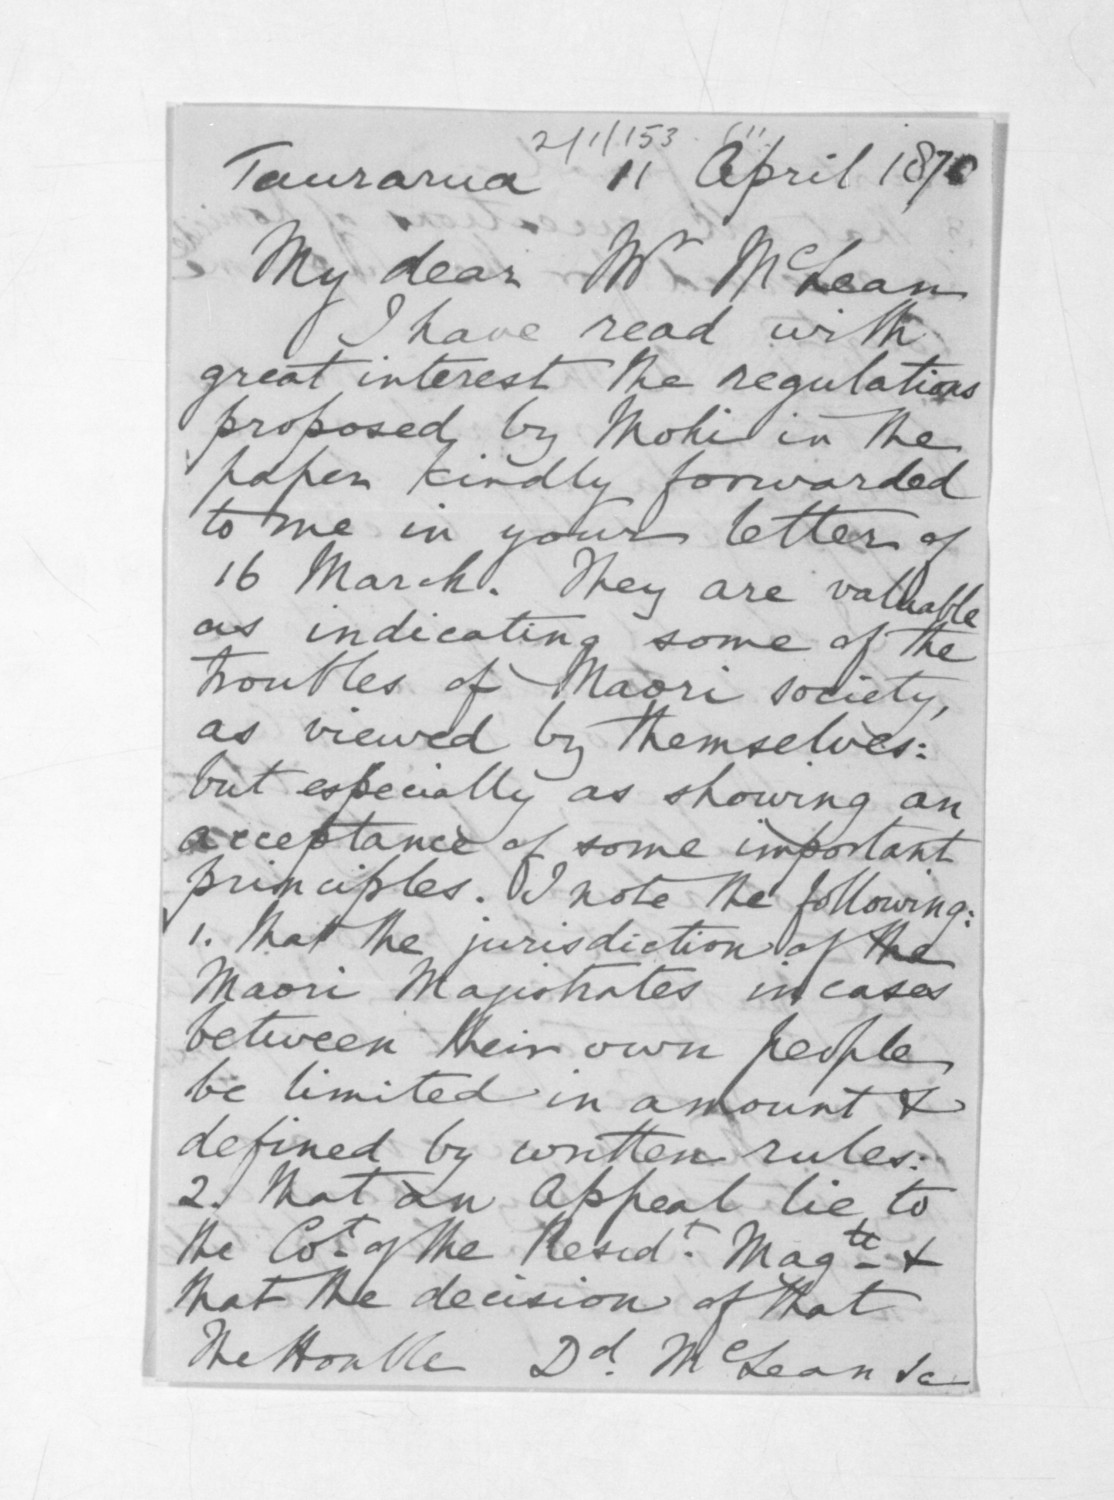 2/1/153
Taurarua 11 April 1870
My dear Mr McLean
I have read with
great interest the regulations
proposed by Mohi in the
paper kindly forwarded
to me in your letter of
16 March. They are valuable
as indicating some of the
troubles of Maori society,
as viewed by themselves:
but especially as showing an
acceptance of some important
principles. I note the following:
1. That the jurisdiction of the
Maori Magistrates in cases
between their own people
be limited in amount &
defined by written rules:
2. That an Appeal lie to
the Cot. of the Residt. Magte & 
that the decision of that
The Honble Dd. McLean &c